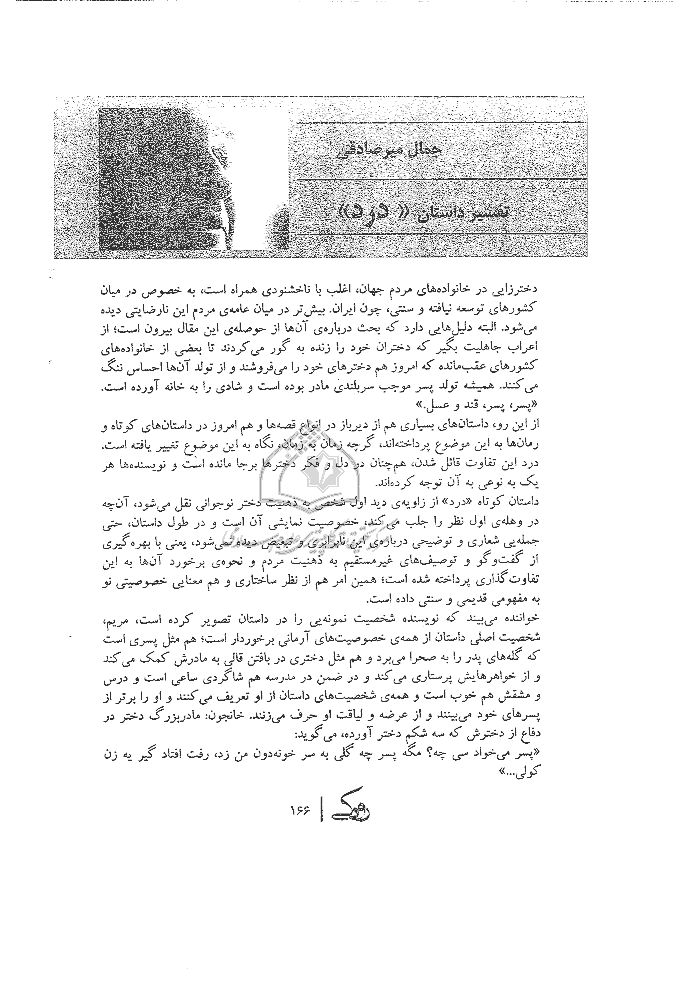 جمال میرصادقی
تفسیر داستان « درد»
دخترزایی در خانواده‌های مردم جهان، اغلب با ناخشنودی همراه است، به خصوص در میان
کشورهای توسعه نیافته و سنتی، چون ایران. بیش‌تر در میان عامه‌ی مردم این نارضایتی دیده
می‌شود. البته دلیل‌هایی دارد که بحث درباره‌ی آن‌ها از حوصله‌ی این مقال بیرون است؛ از
اعراب جاهلیت بگیر که دختران خود را زنده به گور می‌کردند تا بعضی از خانواده‌های
کشورهای عقب‌مانده که امروز هم دخترهای خود را می‌فروشند و از تولد آن‌ها احساس ننگ
می‌کنند. همیشه تولد پسر موجب سربلندی مادر بوده است و شادی را به خانه آورده است.
«پسر، پسر، قند و عسل.»
از این رو، داستان‌های بسیاری هم از دیرباز در انواع قصه‌ها و هم امروز در داستان‌های کوتاه و
رمان‌ها به این موضوع پرداخته‌اند، گرچه زمان به زمان، نگاه به این موضوع تغییر یافته است.
درد این تفاوت قائل شدن، هم‌چنان در دل و فکر دخترها برجا مانده است و نویسنده‌ها هر
یک به نوعی به آن توجه کرده‌اند.
داستان کوتاه «درد» از زاویه‌ی دید اول شخص به ذهنیت دختر نوجوانی نقل می‌شود، آن‌چه
در وهله‌ی اول نظر را جلب می‌کند، خصوصیت نمایشی آن است و در طول داستان، حتی
جمله‌یی شعاری و توضیحی درباره‌ی این نابرابری و تبعیض دیده نمی‌شود، یعنی با بهره‌گیری
از گفت‌وگو و توصیف‌های غیرمستقیم به ذهنیت مردم و نحوه‌ی برخورد آن‌ها به این
تفاوت‌گذاری پرداخته شده است؛ همین امر هم از نظر ساختاری و هم معنایی خصوصیتی نو
به مفهومی قدیمی و سنتی داده است.
خواننده می‌بیند که نویسنده شخصیت نمونه‌یی را در داستان تصویر کرده است، مریم،
شخصیت اصلی داستان از همه‌ی خصوصیت‌های آرمانی برخوردار است؛ هم مثل پسری است
که گله‌های پدر را به صحرا می‌برد و هم مثل دختری در بافتن قالی به مادرش کمک می‌کند
و از خواهرهایش پرستاری می‌کند و در ضمن در مدرسه هم شاگردی ساعی است و درس و
مشقش هم خوب است و همه‌ی شخصیت‌های داستان از او تعریف می‌کنند و او را برتر از
پسرهای خود می‌بینند و از عرضه و لیاقت او حرف می‌زنند. خانجون: مادربزرگ دختر در
دفاع از دخترش که سه شکم دختر آورده، می‌گوید:
«پسر می‌خواد سی چه؟ مگه پسر چه گلی به سر خونه‌دون من زد، رفت افتاد گیر یه زن
کولی...»
۱۶۶